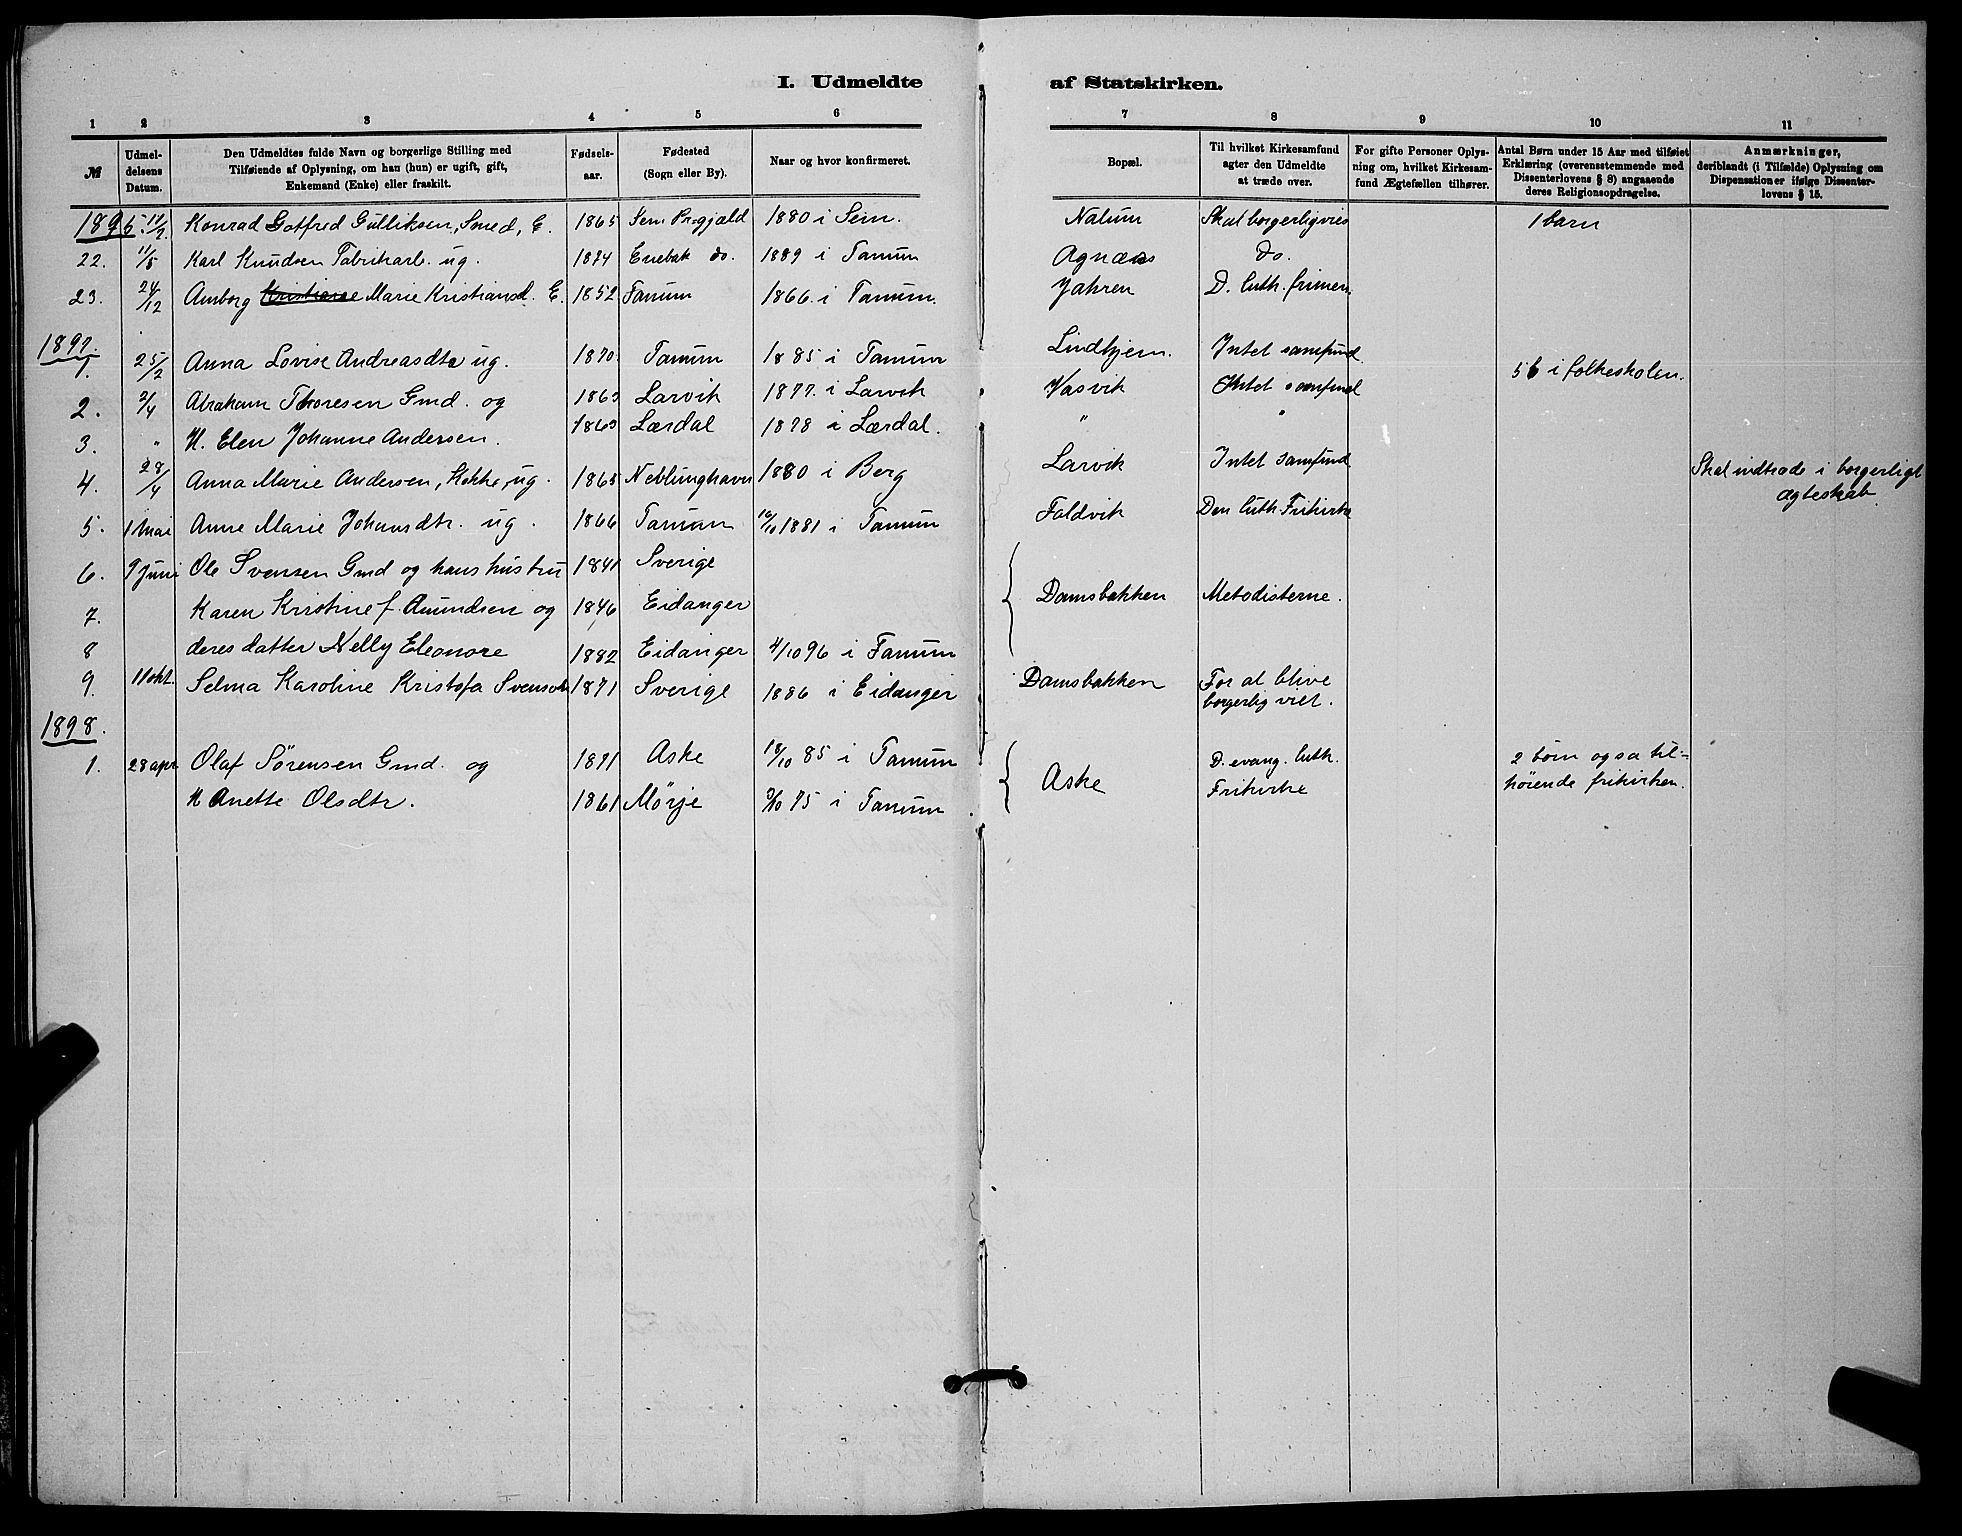 I. Udmeldte af Statskirken.
1 2 3 4 5 6 7 8 9 10 11
№
Udmeldelsens Datum.
Den Udmeldtes fulde Navn og borgerlige Stilling med
Tilføiende af Oplysning, om han (hun) er ugift, gift,
Enkemand (Enke) eller fraskilt.
Fødselsaar.
Fødested
(Sogn eller By).
Naar og hvor konfirmeret.
Bopæl.
Til hvilket Kirkesamfund
agter den Udmeldte
at træde over.
For gifte Personer Oplysning om, hvilket Kirkesamfund Ægtefællen tilhører.
Antal Børn under 15 Aar med tilføiet
Erklæring (overensstemmende med
Dissenterlovens § 8) angaaende
deres Religionsopdragelse.
Anmærkninger,
deriblandt (i Tilfælde) Oplysning om
Dispensationer ifølge Dissenterlovens § 15.
1896. Konrad Gotfred Gulliksen, Smed, E. 1865 Sem Prgjæld 1880 i Sem. Nalum Skal borgerlig vies 1 barn
22. 11/8 Karl Knudsen Fabrikarb. ug. 1874 Enebak do. 1889 i Tanum Agnæs do.
23. 24/12 Amborg Kristianse Marie Kristiansd. E. 1852 Tanum 1866 i Tanum. Jahren D. luth. frimen.
1897.
1. 25/2 Anna Lovise Andreasdtr ug. 1870. Tanum 1885 i Tanum Lindhjem. Intet samfund
2. 2/4 Abraham Thoresen Gmd. og 1863 Larvik 1877. i Larvik Vasvik Intet samfund 5 b i folkeskolen.
3. " H. Elen Johanne Andersen. 1863 Lærdal 1878 i Lærdal. " "
4. 28/4 Anna Marie Andersen, Kokke, ug. 1865 Neblunghavn 1880 i Berg Larvik Intet samfund Skal indtræde i borgerligt
ægteskab
5. 1 mai Anne Marie Johansdtr. ug. 1866 Tanum 16/10 1881 i Tanum Faldvik Den luth. Frikirke
6. 9 Juni Ole Svensen Gmd og hans hustru 1841 Sverige
7. Karen Kristine f. Amundsen og 1846 Eidanger Damsbakken Metodisterne.
8 deres datter Nelly Eleonore 1882 Eidanger 4/10 96 i Tanum
9. 11 okt. Selma Karoline Kristofa Svensdtr 1871 Sverige 1886 i Eidanger Damsbakken For at blive
borgerlig viet.
1898.
1. 28 apr Olaf Sørensen Gmd. og 1871 Aske 18/10 85 i Tanum Aske D. evang. luth.
Frikirke 2 børn også til-
hørende frikirken.
H Anette Olsdtr. 1861 Mørje 75 i Tanum